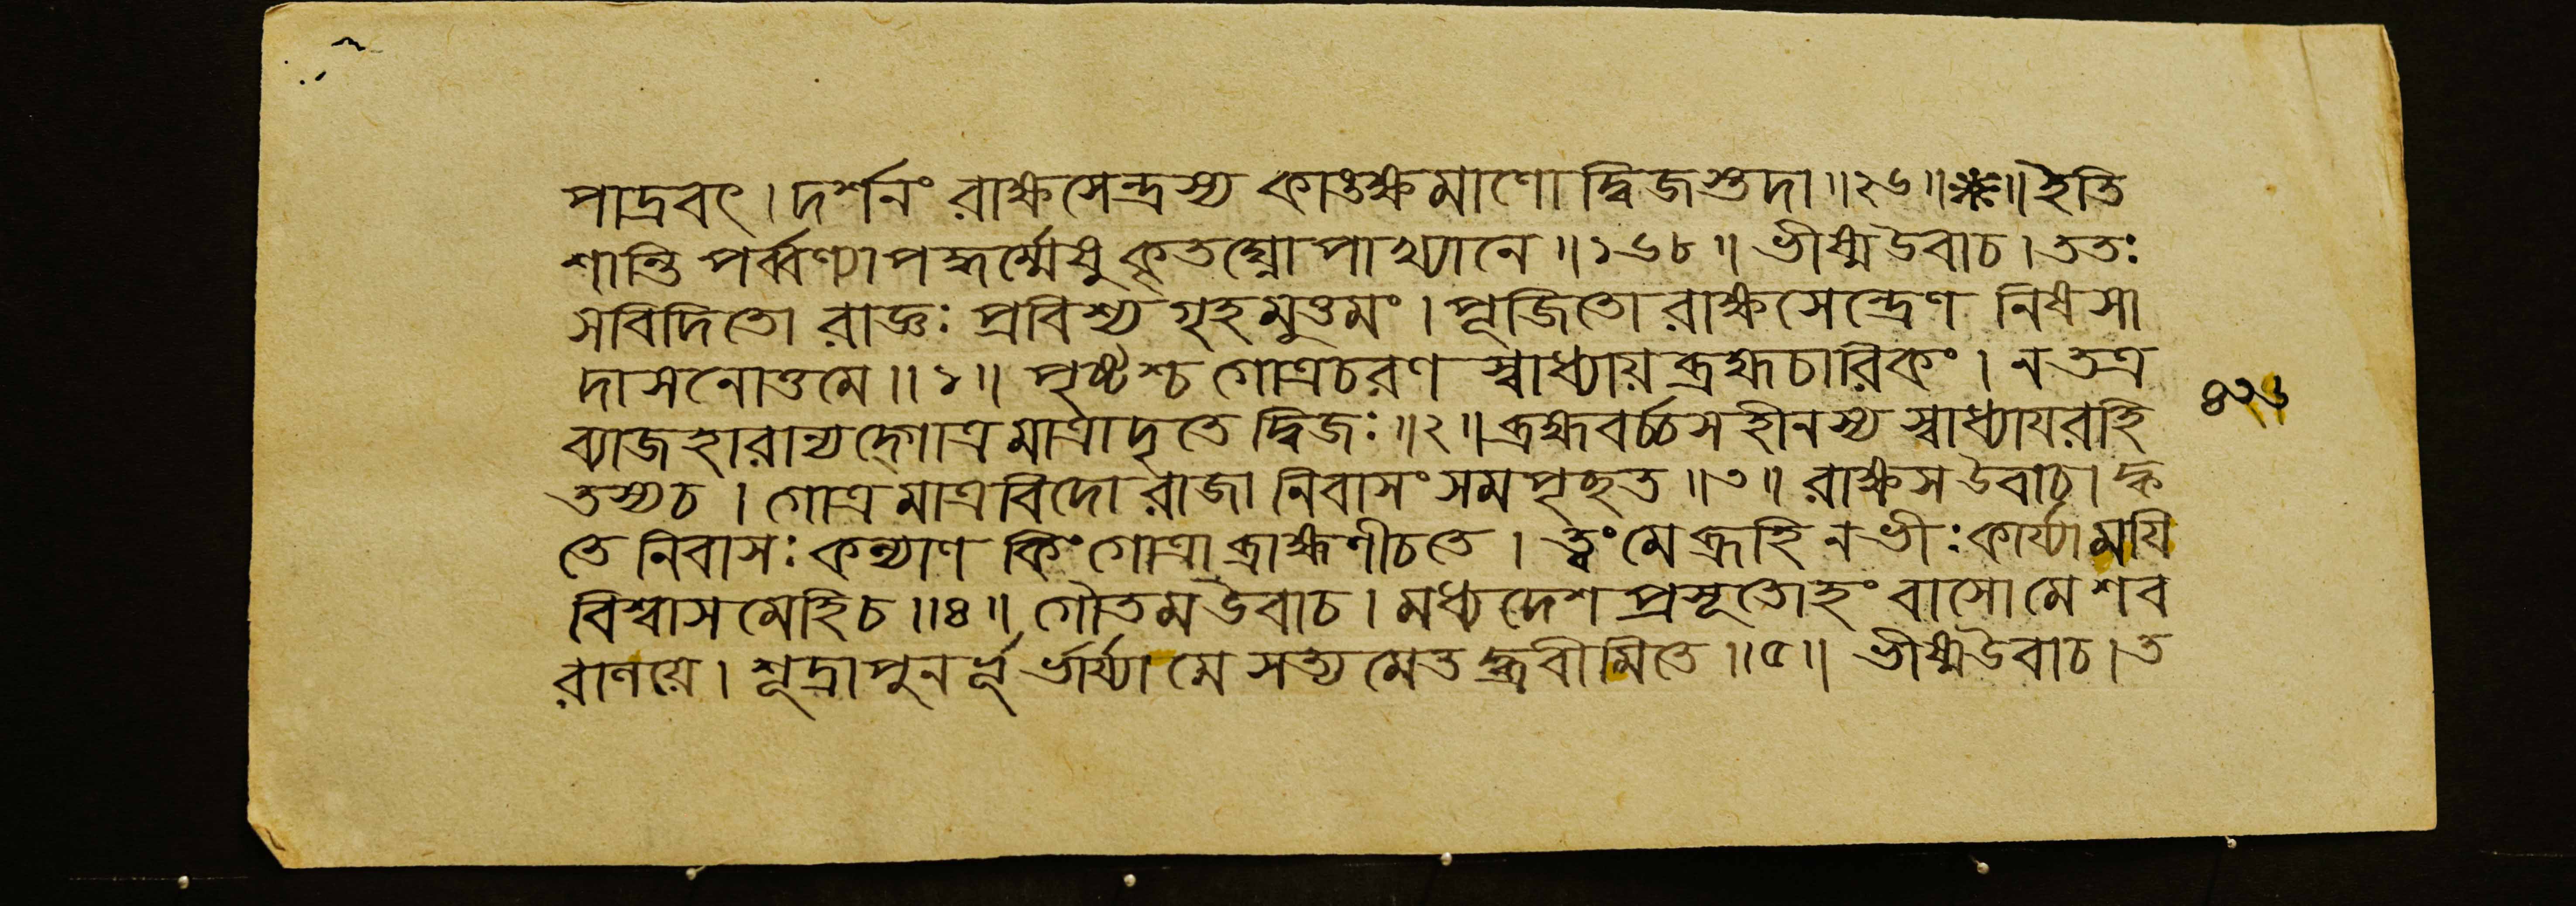 পাদ্রবৎ । দর্শনং রাক্ষসেন্দ্রস্য কাঙক্ষমাণো দ্বিজস্তদা ॥ ২৬ ॥ ❋ ॥ ইতি
শান্তি পর্ব্বণ্যাপদ্ধর্ম্মেষু কৃতঘ্নোপাখ্যানে ॥ ১৬৮ ॥ ভীষ্ম উবাচ । ততঃ
সবিদিতো রাজ্ঞঃ প্রবিশ্য গৃহমুত্তমং । পূজিতো রাক্ষসেন্দ্রেণ নিষসা
দাসনোত্তমে ॥ ১ ॥ পৃষ্টশ্চ গোত্রচরণ স্বাধ্যায় ব্রহ্মচারিকং । ন তত্র
ব্যাজহারান্যদ্গোত্রমাত্রাদৃতে দ্বিজঃ ॥ ২ ॥ ব্রহ্মবর্চ্চসহীনস্য স্বাধ্যায়রহি
তস্যচ । গোত্রমাত্রবিদো রাজা নিবাসং সমপৃচ্ছত ॥ ৩ ॥ রাক্ষস উবাচ । ক্ক
তে নিবাসঃ কল্যাণ কিংগোত্রা ব্রাহ্মণীচতে । ত্ত্বংমে ব্রূহি নভীঃ কার্য্যা ময়ি
বিশ্বাসমেহিচ ॥ ৪ ॥ গৌতম উবাচ । মধ্যদেশ প্রসূতোহং বাসো মে শব
রাণয়ে । শূদ্রা পুনর্ভূর্ভার্য্যা মে সত্যমেতদ্ব্রবীমিতে ॥ ৫ ॥ ভীষ্ম উবাচ । ত
৪২৬